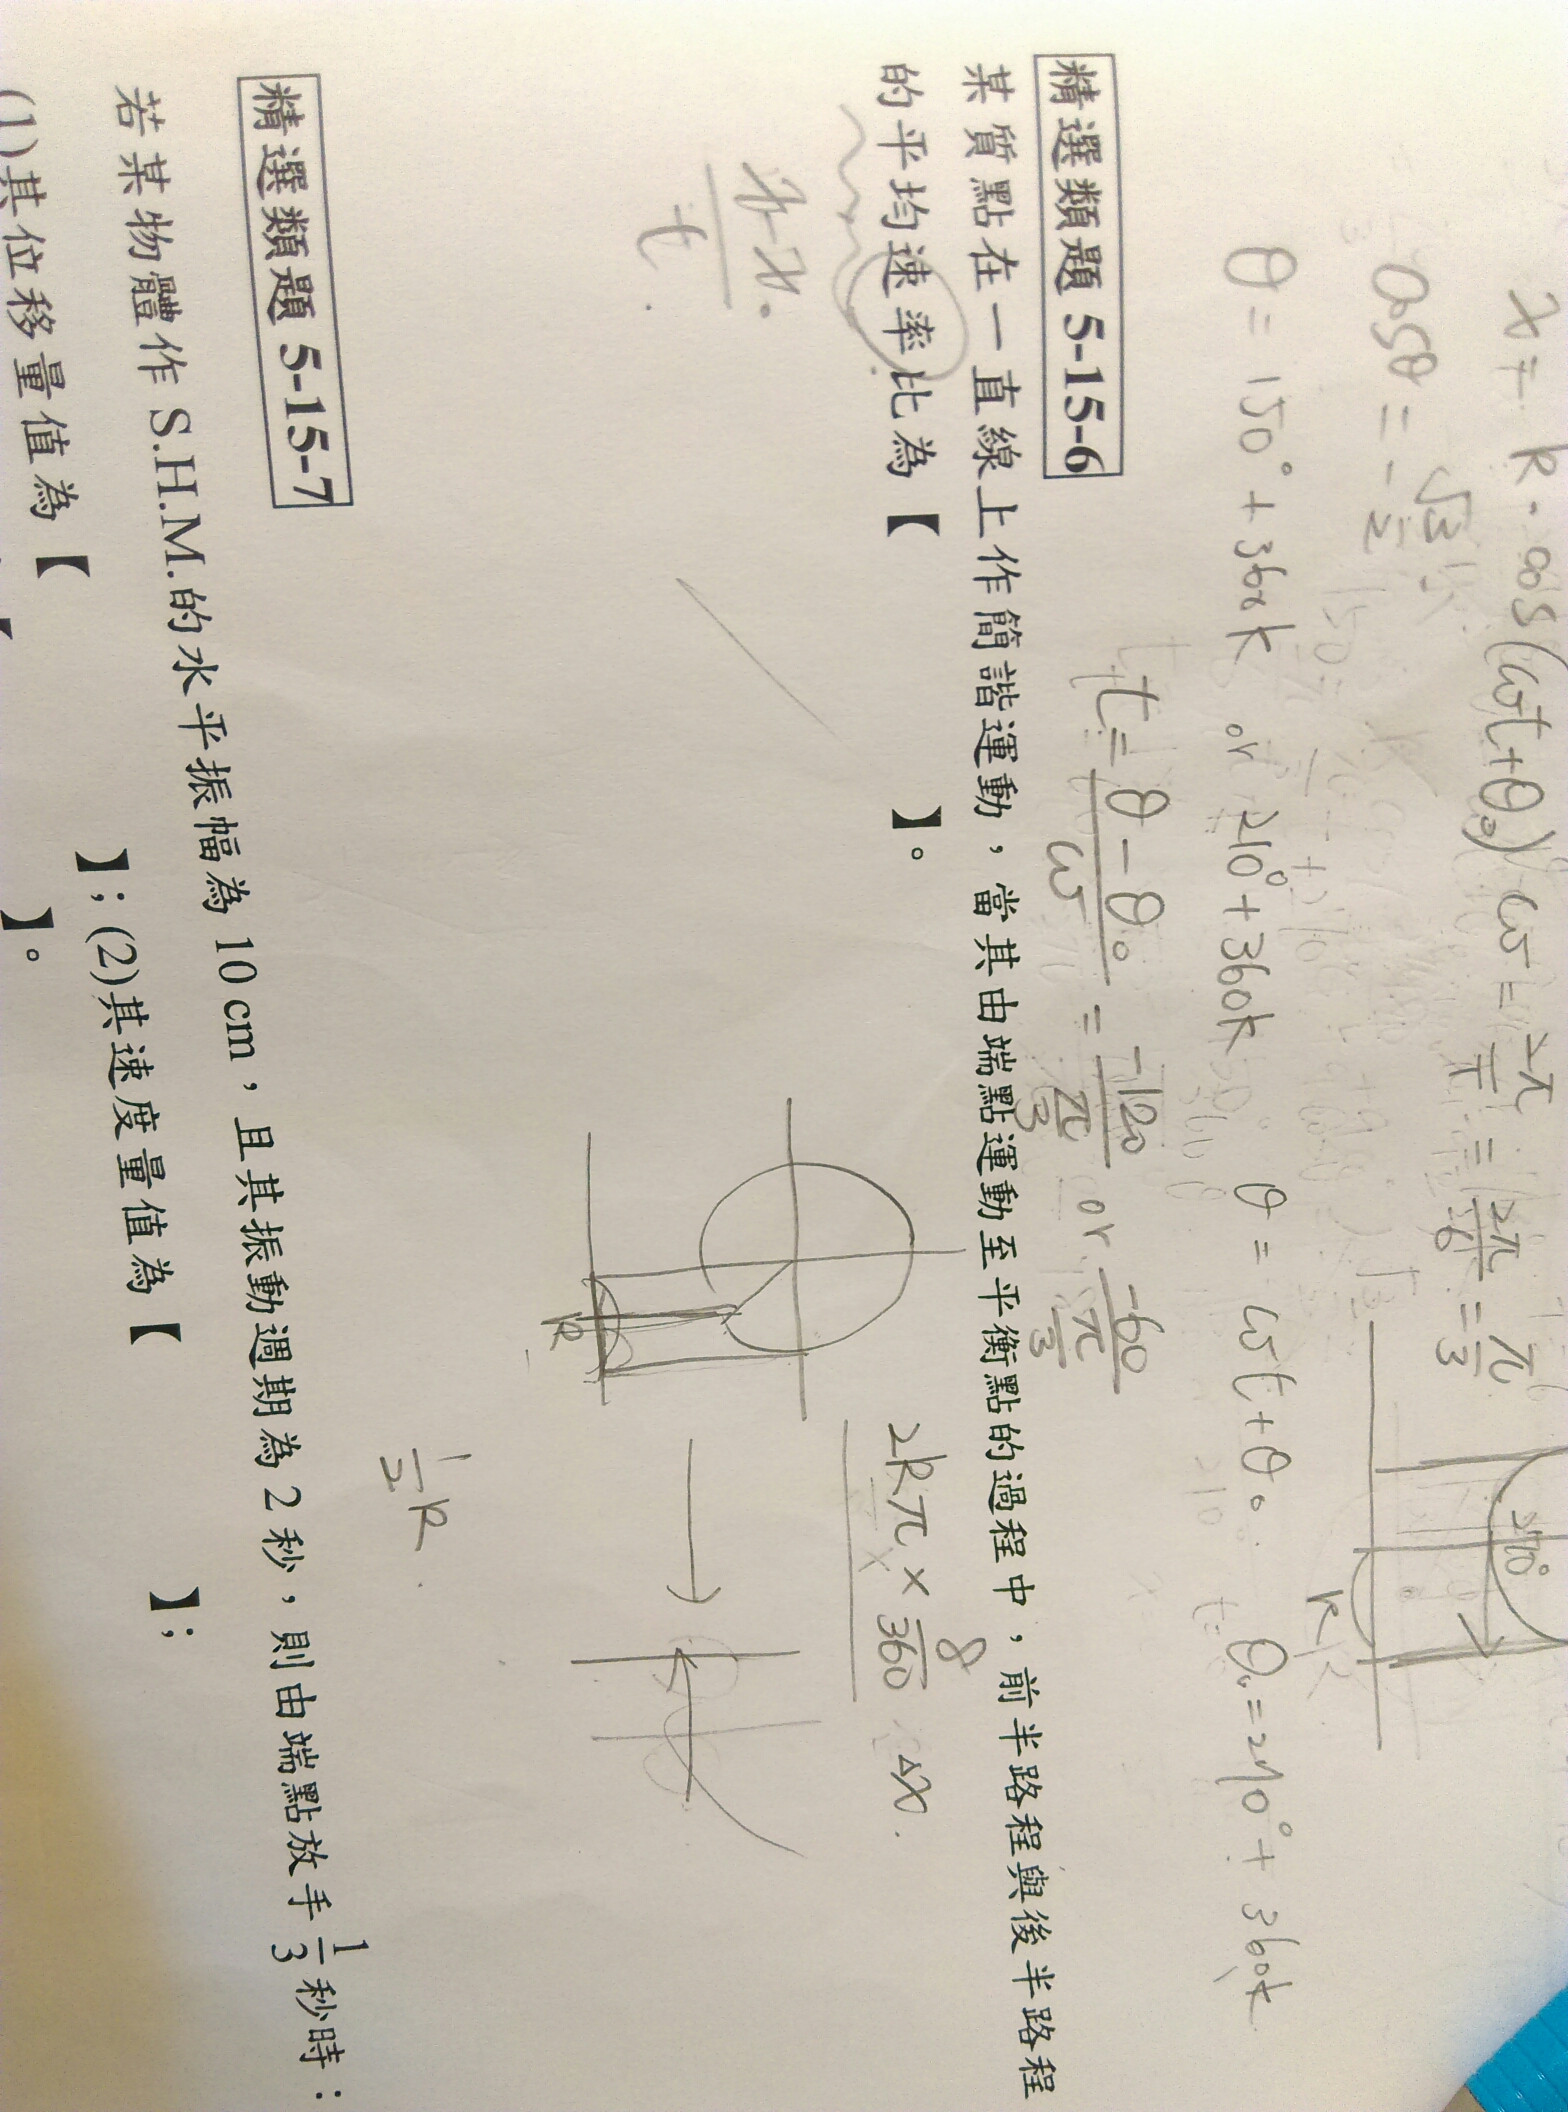 x = R · cos(ωt+θ₀) ω = 2π/T = 2π/6 = π/3
cosθ = -√3/2
270°
R
θ = 150° + 360k or 210° + 360k θ = ωt + θ₀ θ₀ = 270° + 360k
t = θ - θ₀/ω = -120/(π/3) or -60/(π/3)
精選類題 5-15-6
某質點在一直線上作簡諧運動，當其由端點運動至平衡點的過程中，前半路程與後半路程
的平均速率比為【 】。
2Rπ × θ/360 Δx
x-x₀/t
R
1/2 R
精選類題 5-15-7
若某物體作 S.H.M.的水平振幅為 10 cm，且其振動週期為 2 秒，則由端點放手 1/3 秒時：
(1)其位移量值為【 】；(2)其速度量值為【 】；
【 】。